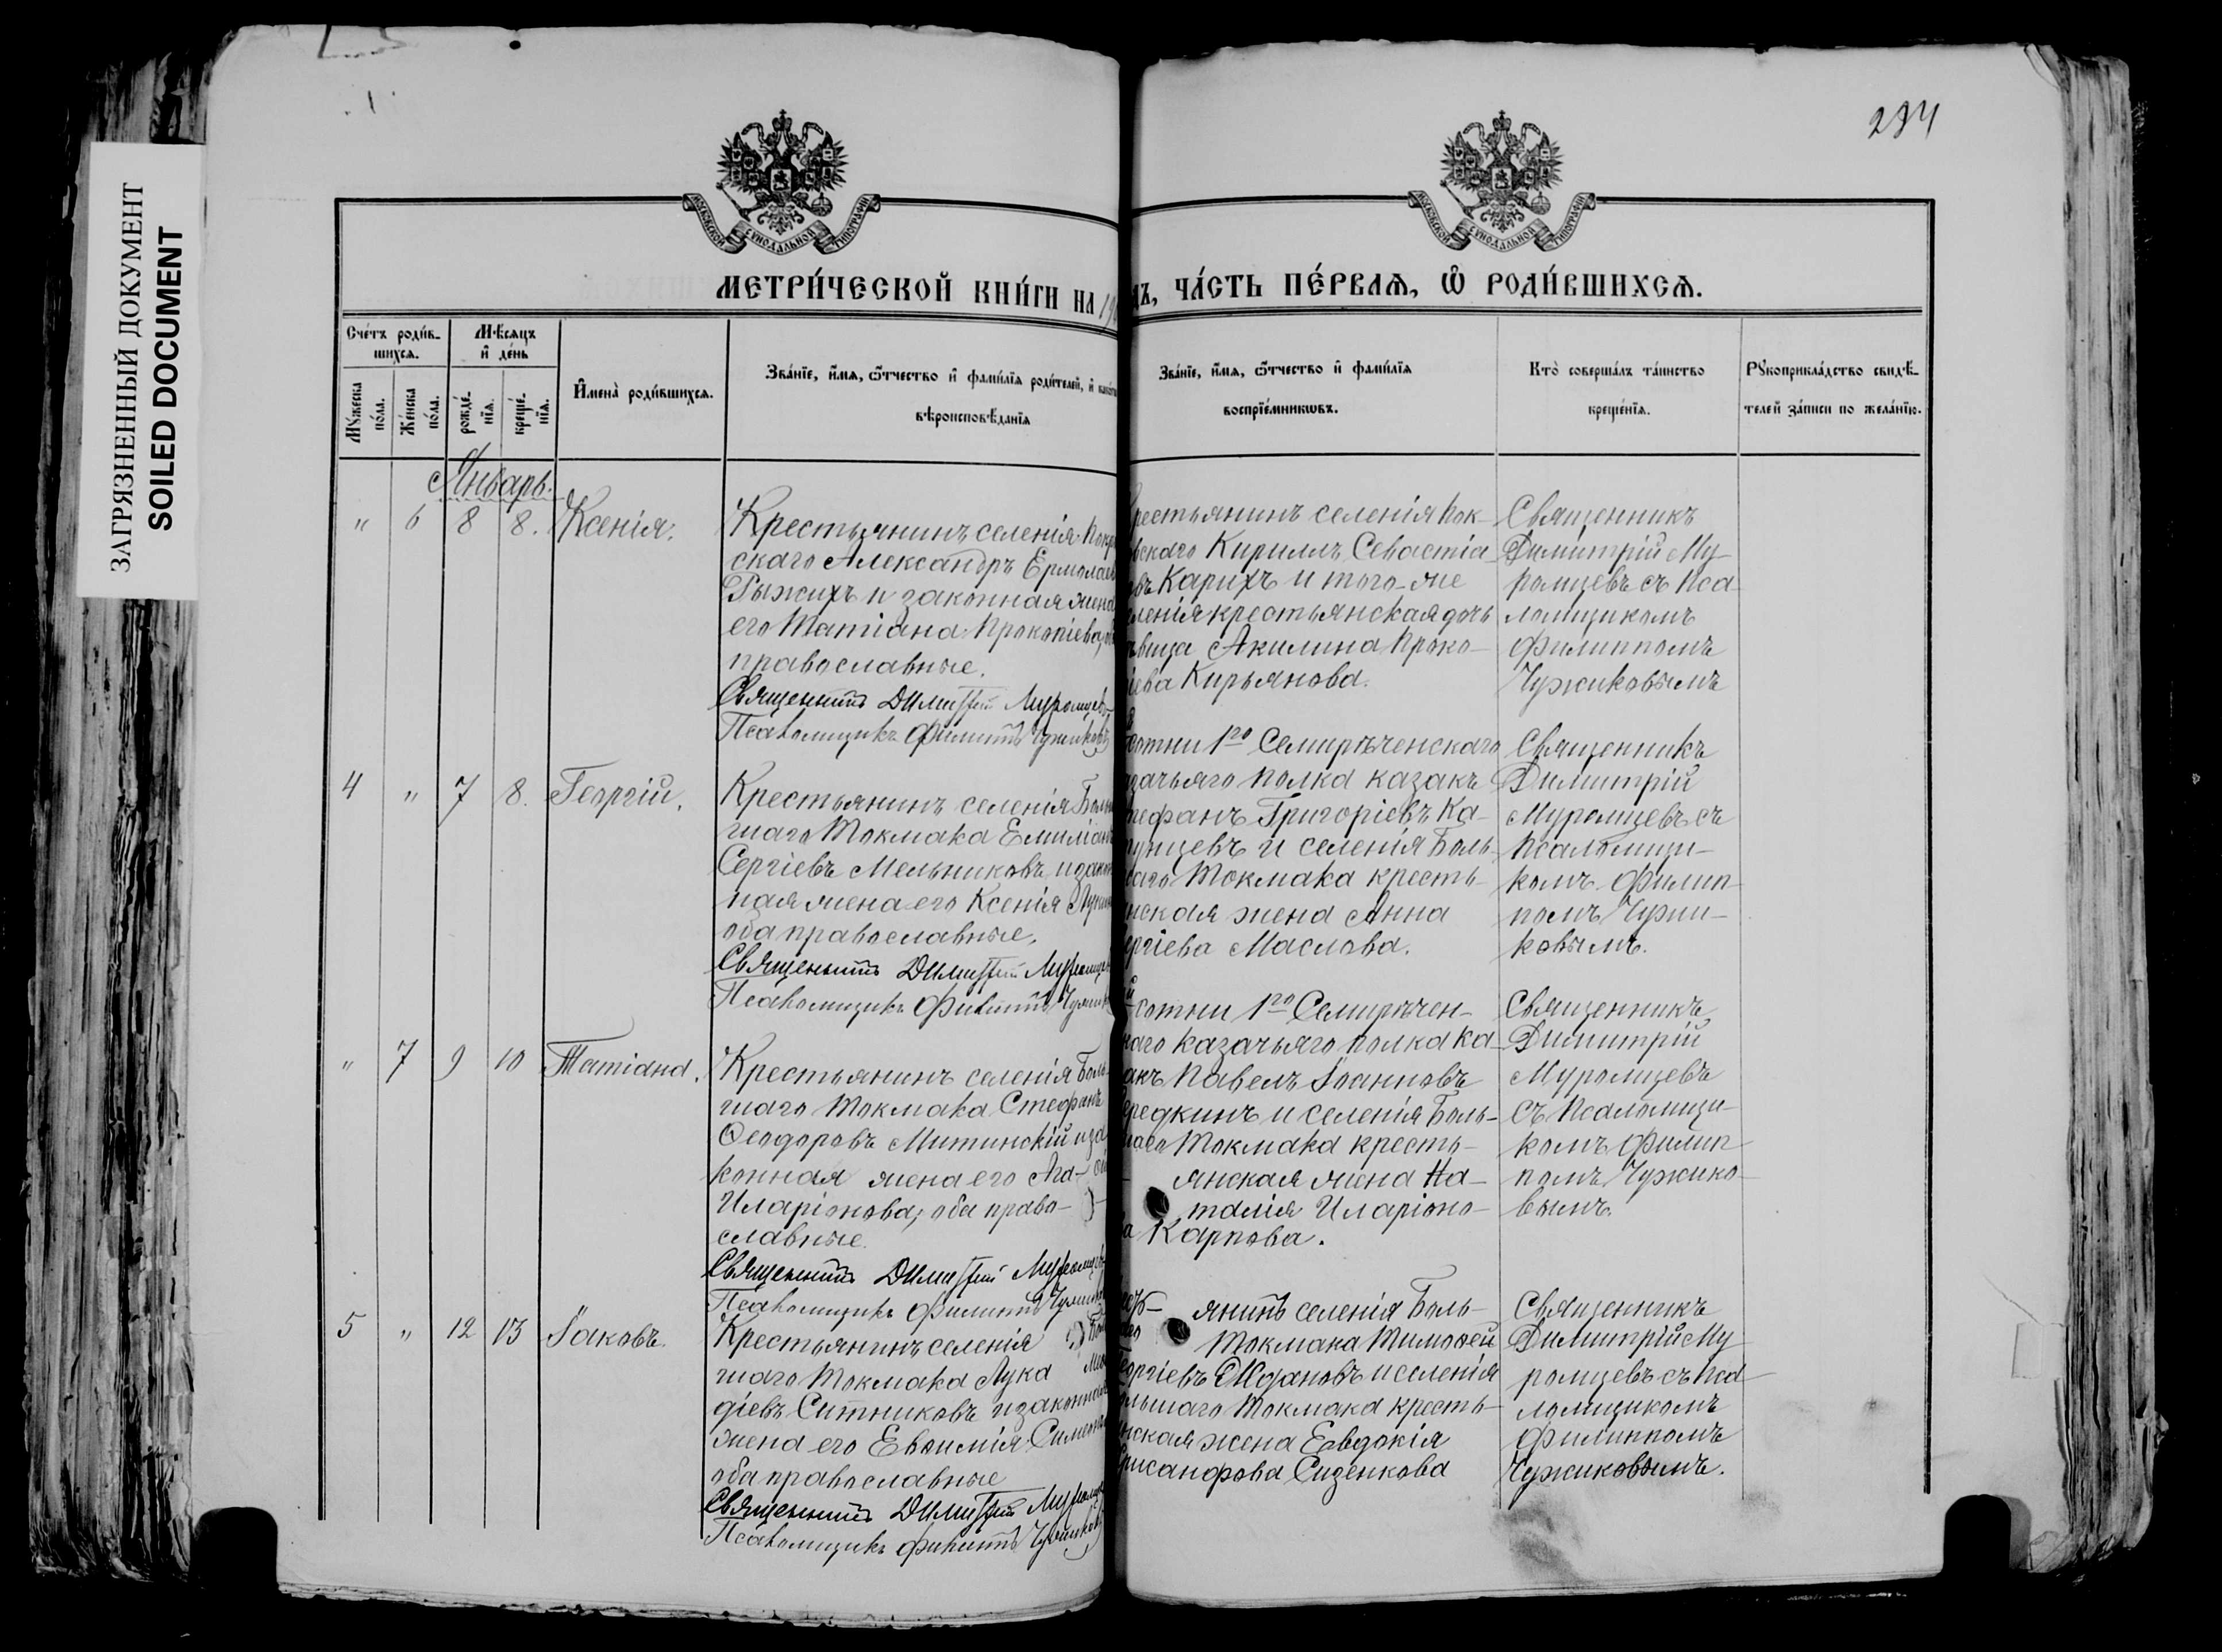 ЗАГРЯЗНЕННЫЙ ДОКУМЕНТ
SOILED DOCUMENT
234
МОСКОВСКОЙ СѴНОДАЛЬНОЙ ТИПОГРАФІИ
МОСКОВСКОЙ СѴНОДАЛЬНОЙ ТИПОГРАФІИ
МЕТРИ́ЧЕСКОЙ КНИ́ГИ НА 19
ДЪ, ЧА́СТЬ ПЕ́РВАѦ, Ѽ РОДИ́ВШИХСѦ.
Сче́тъ роди́в-
шихсѧ.
Мѣсѧцъ
и де́нь
Мꙋ́жеска
по́ла.
Же́нска
по́ла.
рожде́-
нїѧ.
креще́-
нїѧ.
Имена̀ роди́вшихсѧ.
Зва́нїе, и́мѧ, ѻ́тчество и фами́лїѧ роди́телей, и како́г
вѣроисповѣ́данїѧ
Зва́нїе, и́мѧ, ѻ́тчество и фами́лїѧ
воспрїе́мникѡвъ.
Кто̀ соверша́лъ та́инство
креще́нїѧ.
Рꙋкоприкла́дство свидѣ́-
телей за́писи по жела́нїю.
Январь.
" 6 8 8. Ксенія.
Крестьянинъ селенія Покр
скаго Александръ Ермолаев
Рыжихъ и законная жена
его Татіана Прокопіева, об
православные.
Священникъ Димитрій Муромцевъ
Псаломщикъ Филиппъ Чужиковъ
рестьянинъ селенія Пок-
вскаго Кириллъ Севастіа-
въ Карихъ и того-же
ленія крестьянская дочь
вица Акилина Проко-
іева Кирьянова.
Священникъ
Димитрій Му-
ромцевъ съ Пса-
ломщикомъ
Филиппомъ
Чужиковымъ
4 " 7 8. Георгій.
Крестьянинъ селенія Боль
шаго Токмака Емиліанъ
Сергіевъ Мельниковъ и закон
ная жена его Ксенія Лукин
оба православные.
Священникъ Димитрій Муромцев
Псаломщикъ Филиппъ Чужик
сотни 1го Семирѣченскаго
зачьяго полка казакъ
тефанъ Григоріевъ Ка-
унцевъ и селенія Боль-
шаго Токмака кресть-
нская жена Анна
ергіева Маслова.
Священникъ
Димитрій
Муромцевъ съ
Псаломщи-
комъ Филип-
помъ Чужи-
ковымъ.
" 7 9 10 Татіана.
Крестьянинъ селенія Боль-
шаго Токмака Стефанъ
Ѳеодоровъ Митинскій и за
конная жена его Ага-
Иларіонова; оба право-
славные.
Священникъ Димитрій Муромцевъ
Псаломщикъ Филиппъ Чужико
й сотни 1го Семирѣчен-
каго казачьяго полка ка-
акъ Павелъ Іоанновъ
редкинъ и селенія Боль-
шаго Токмака кресть-
янская жена На-
талія Иларіоно-
ва Карпова.
Священникъ
Димитрій
Муромцевъ
съ Псаломщи-
комъ Филип-
помъ Чужико-
вымъ.
5 " 12 13 Іаковъ.
Крестьянинъ селенія Бол
шаго Токмака Лука
діевъ Ситниковъ и законная
жена его Евѳимія Симеоно
оба православные
Священникъ Димитрій Муромц
Псаломщикъ Филиппъ Чужиков
янинъ селенія Боль-
Токмака Тимоѳей
еоргіевъ Ждановъ и селенія
льшаго Токмака кресть-
нская жена Евдокія
рисанфова Сизенкова
Священникъ
Димитрій Му-
ромцевъ съ Пса-
ломщикомъ
Филиппомъ
Чужиковымъ.